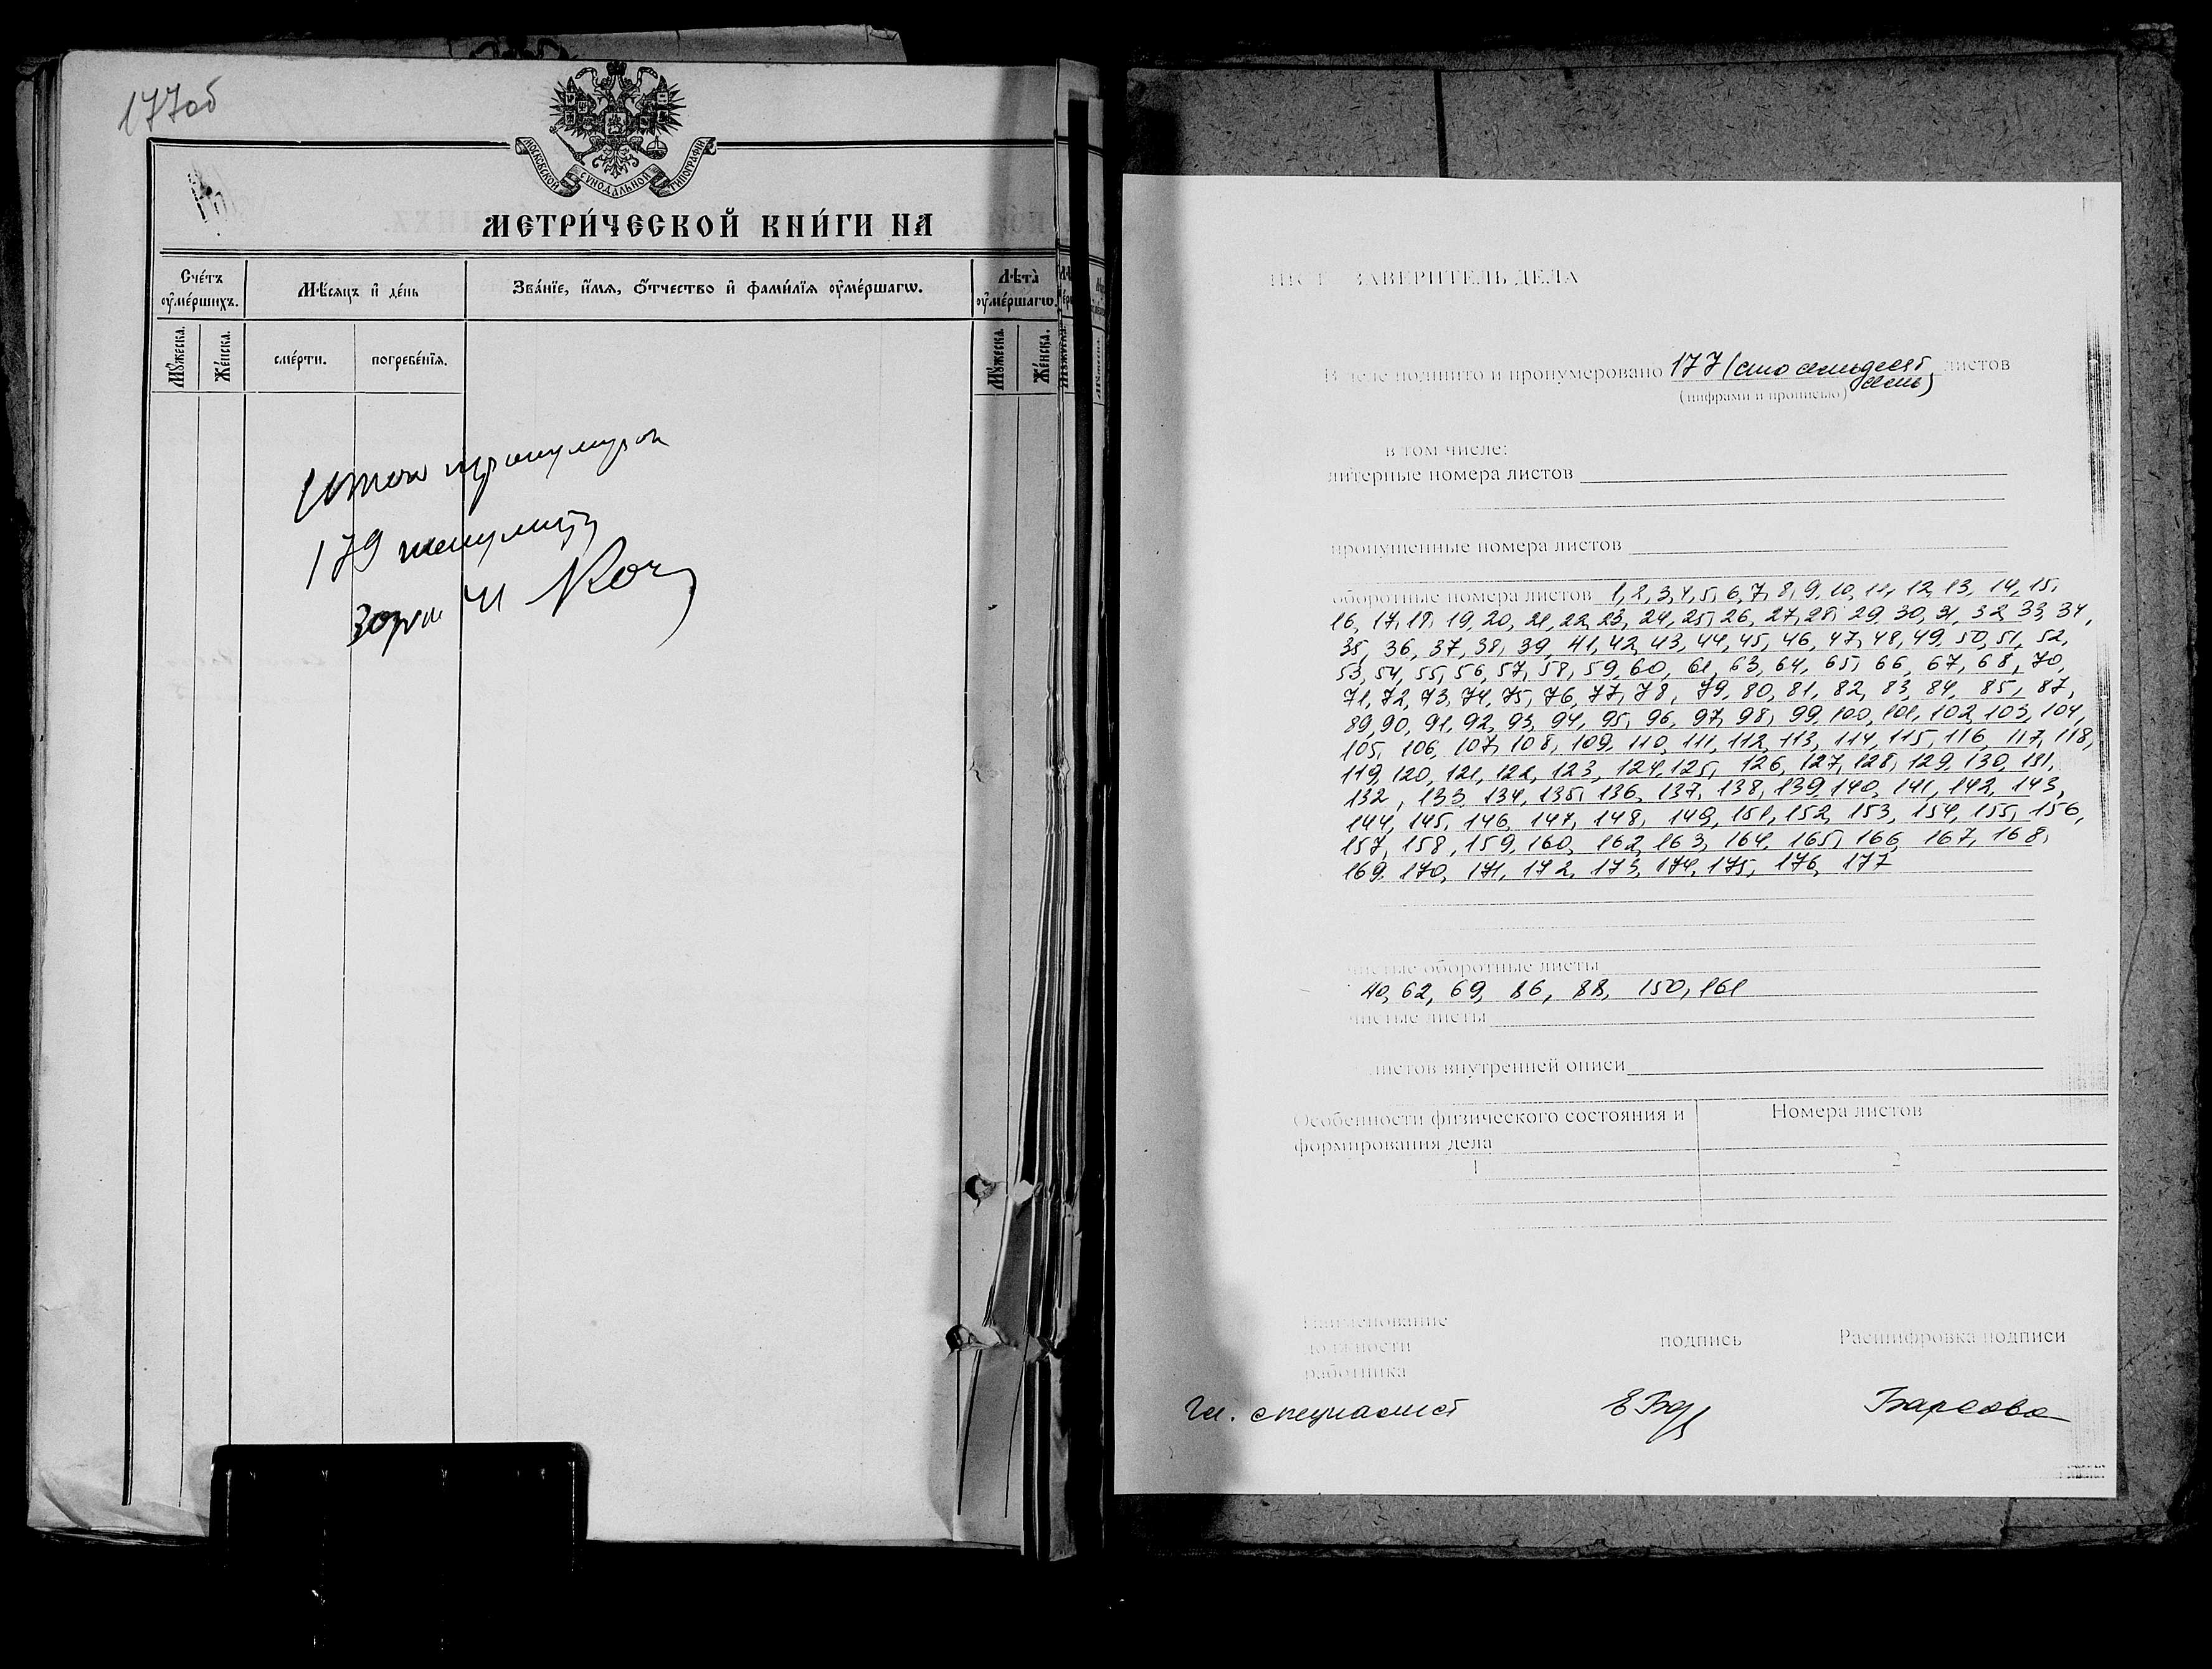 177об
МОСКОВСКОЙ СѴНОДАЛЬНОЙ ТИПОГРАФИИ
МЕТРИ́ЧЕСКОЙ КНИ́ГИ НА
Сче́тъ ᲂу҆ме́ршихъ.
Мѣ́сяцъ и҆ де́нь
Зва́нїе, и҆́мѧ, ѻ҆́тчество и҆ фами́лїѧ ᲂу҆ме́ршагѡ.
Лѣ́та ᲂу҆ме́ршагѡ.
Мꙋ́жеска.
Же́нска.
сме́рти.
погребе́нїѧ.
Мꙋ́жеска.
Же́нска.
179
ЛИСТ ЗАВЕРИТЕЛЬ ДЕЛА
В деле подшито и пронумеровано 177 (сто семьдесят семь) листов
(цифрами и прописью)
в том числе:
литерные номера листов
пропущенные номера листов
оборотные номера листов 1, 2, 3, 4, 5, 6, 7, 8, 9, 10, 11, 12, 13, 14, 15,
16, 17, 18, 19, 20, 21, 22, 23, 24, 25, 26, 27, 28, 29, 30, 31, 32, 33, 34,
35, 36, 37, 38, 39, 41, 42, 43, 44, 45, 46, 47, 48, 49, 50, 51, 52,
53, 54, 55, 56, 57, 58, 59, 60, 61, 63, 64, 65, 66, 67, 68, 70,
71, 72, 73, 74, 75, 76, 77, 78, 79, 80, 81, 82, 83, 84, 85, 87,
89, 90, 91, 92, 93, 94, 95, 96, 97, 98, 99, 100, 101, 102, 103, 104,
105, 106, 107, 108, 109, 110, 111, 112, 113, 114, 115, 116, 117, 118,
119, 120, 121, 122, 123, 124, 125, 126, 127, 128, 129, 130, 131,
132, 133, 134, 135, 136, 137, 138, 139, 140, 141, 142, 143,
144, 145, 146, 147, 148, 149, 151, 152, 153, 154, 155, 156,
157, 158, 159, 160, 162, 163, 164, 165, 166, 167, 168,
169, 170, 171, 172, 173, 174, 175, 176, 177
чистые оборотные листы
40, 62, 69, 86, 88, 150, 161
чистые листы
листов внутренней описи
Особенности физического состояния и формирования дела
Номера листов
1
2
Наименование должности работника
подпись
Расшифровка подписи
Гл. специалист
Барсова